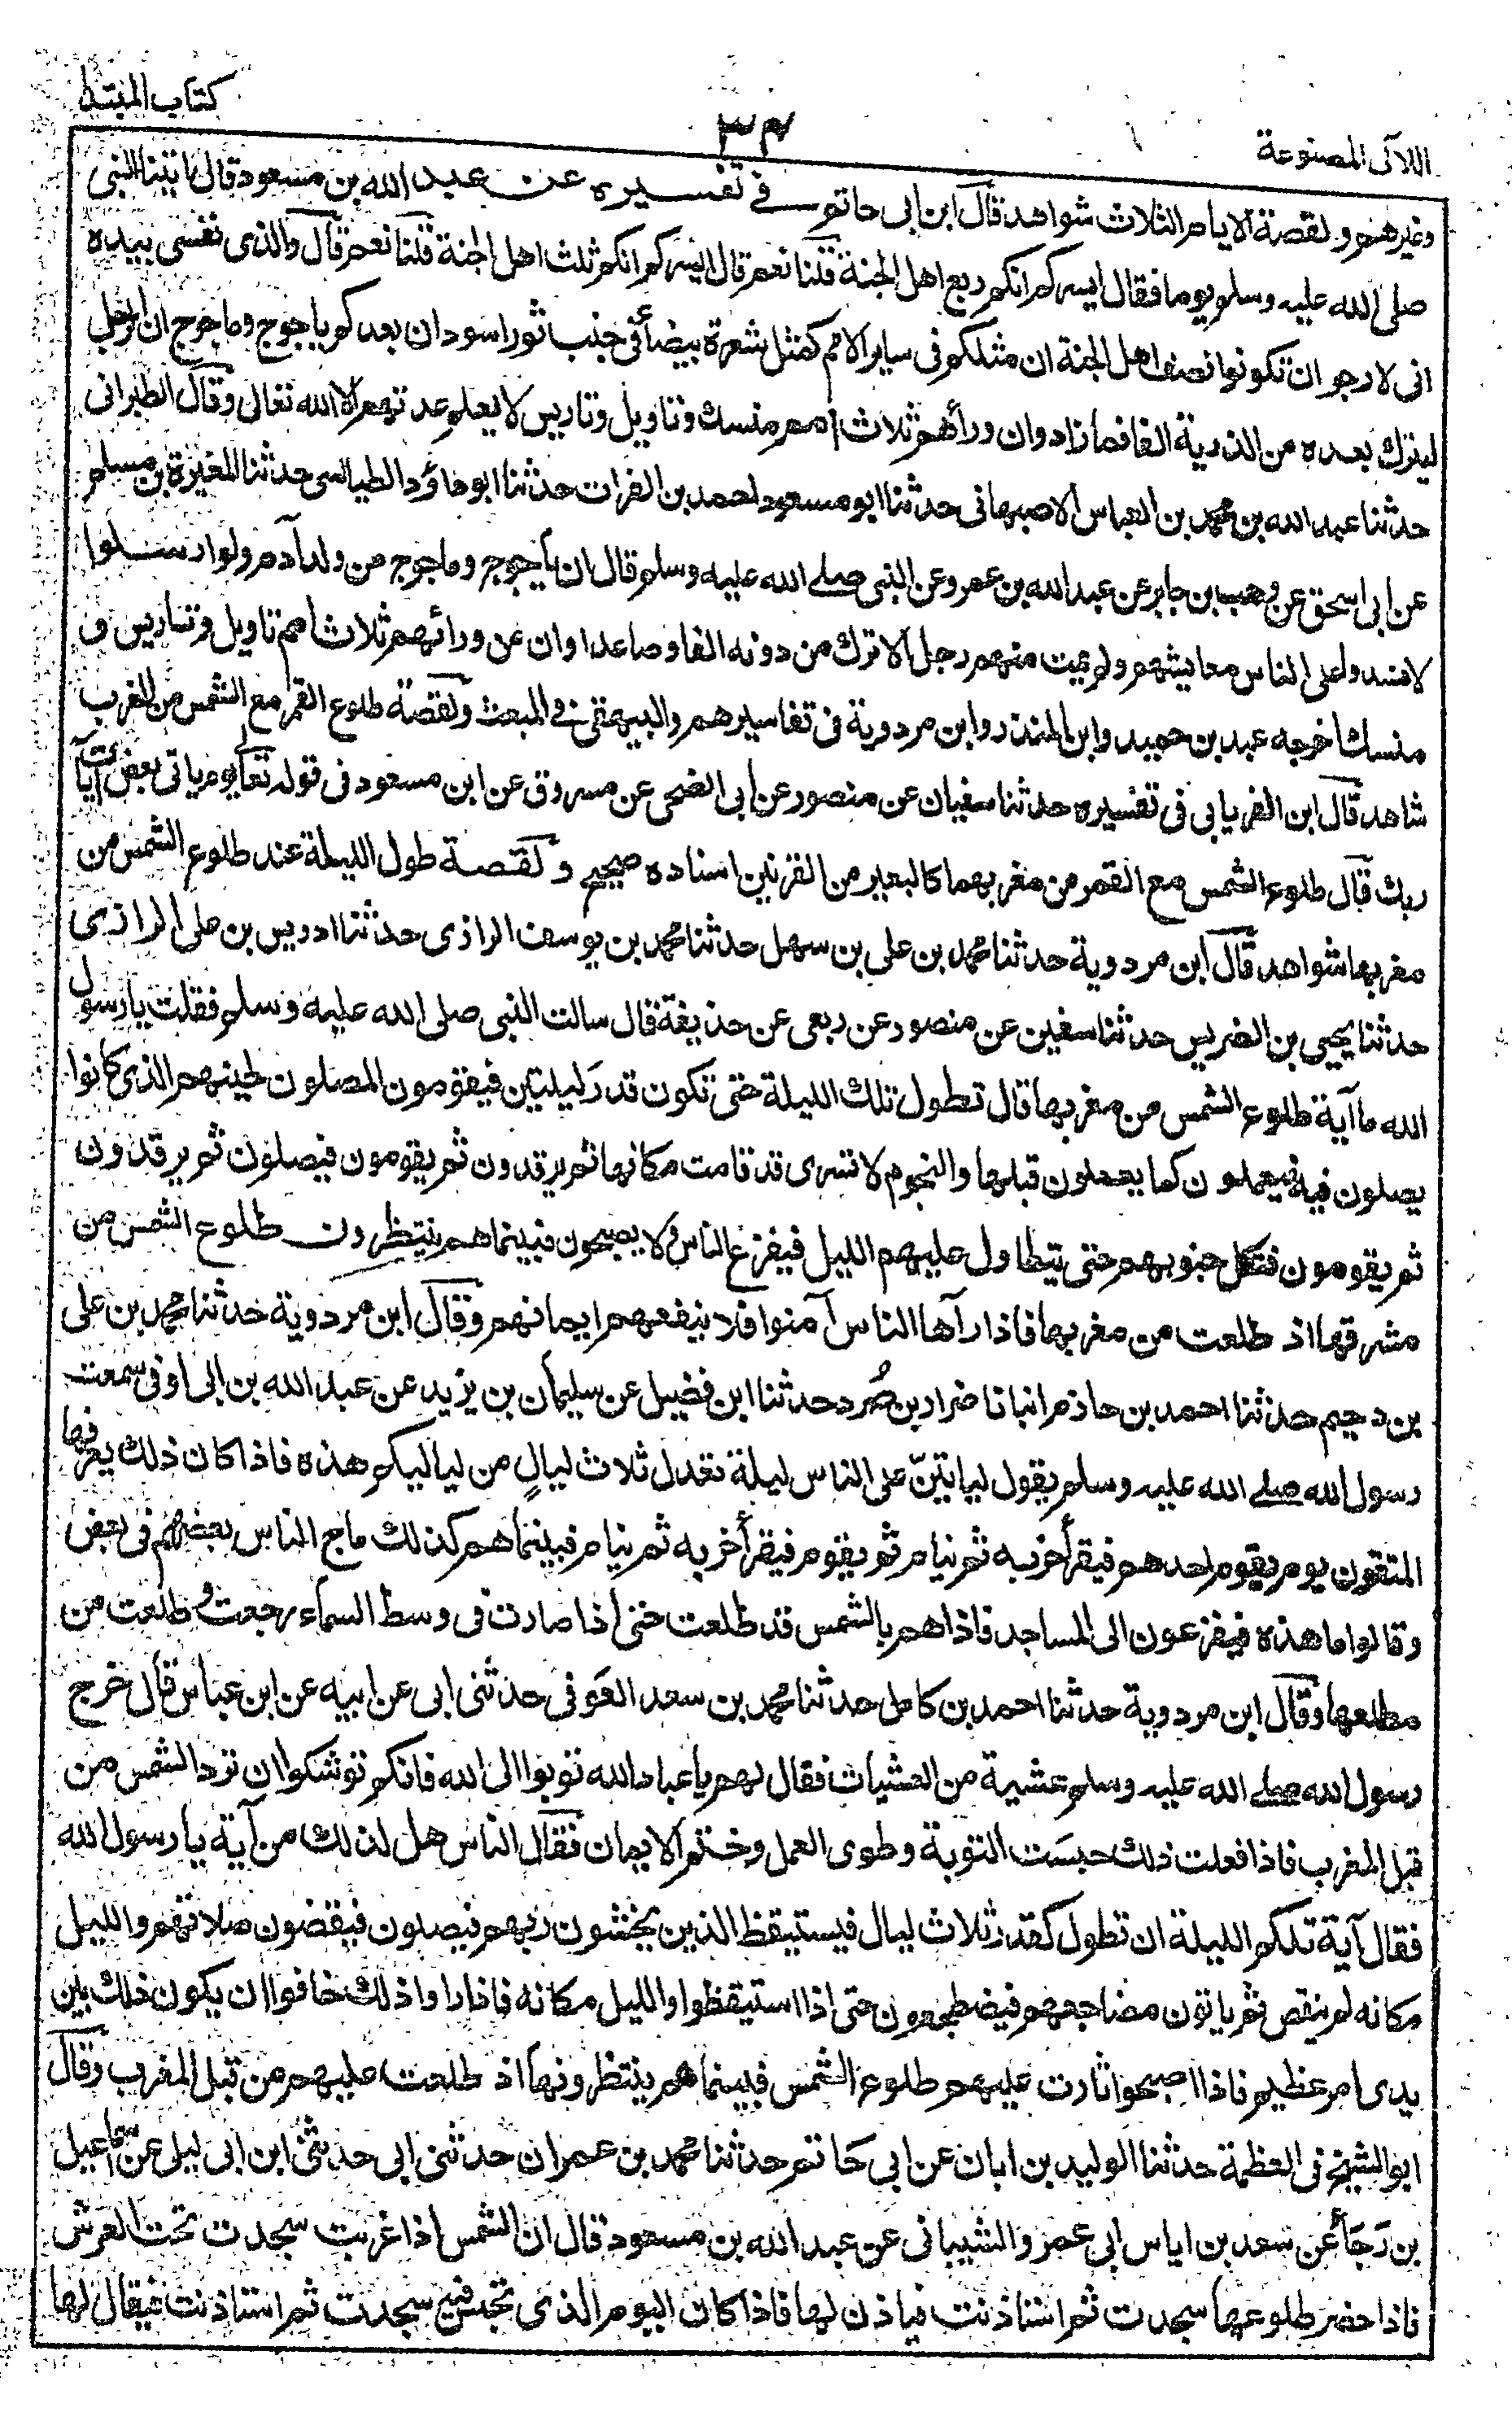 كتاب المبتدا
٣٤
اللآلى المصنوعة
وغيرهم ولقصة الايام الثلاث شواهد قال ابن ابى حاتم فى تفسيره عن عبد الله بن مسعود قال اتينا النبى
صلى الله عليه وسلم يوما فقال ايسركم انكم ربع اهل الجنة قلنا نعم قال ايسركم انكم ثلث اهل الجنة قلنا نعم قال والذى نفسى بيده
انى لارجو ان تكونوا نصف اهل الجنة ان مثلكم فى ساير الامم كمثل شعرة بيضأ فى جنب ثور اسود ان بعدكم ياجوج وماجوج ان الرجل
ليترك بعده من الذرية الفا فما زاد وان ورأهم ثلاث امم منسك وتاويل وتاريس لا يعلم عدتهم الا الله تعالى وقال الطبرانى
حدثنا عبد الله بن محمد بن العباس الاصبهانى حدثنا ابو مسعود احمد بن الفرات حدثنا ابو داؤد الطيالسى حدثنا المغيرة بن مسلم
عن ابى اسحق عن وهب بن جابر عن عبد الله بن عمرو عن النبى صلے الله عليه وسلم قال ان يأجوج وماجوج من ولد آدم ولو ارسلوا
لافسدوا على الناس معايشهم ولم يمت منهم رجل الا ترك من دونه الفا وصاعدا وان من ورائهم ثلاث امم تاويل وتاريس و
منسك اخرجه عبد بن حميد وابن المنذر وابن مردوية فى تفاسيرهم والبيهقى فى المبعث ولقصة طلوع القمر مع الشمس من المغرب
شاهد قال ابن الفريابى فى تفسيره حدثنا سفيان عن منصور عن ابى الضحى عن مسروق عن ابن مسعود فى قوله تعا يوم ياتى بعض آيات
ربك قال طلوع الشمس مع القمر من مغربهما كالبعيرين القرنين اسناده صحيح ولقصة طول الليلة عند طلوع الشمس من
مغربها شواهد قال ابن مردوية حدثنا محمد بن على بن سهل حدثنا محمد بن يوسف الرازى حدثنا ادريس بن على الرازى
حدثنا يحيى بن الضريس حدثنا سفين عن منصور عن ربعى عن حذيفة قال سالت النبى صلى الله عليه وسلم فقلت يا رسول
الله ما آية طلوع الشمس من مغربها قال تطول تلك الليلة حتى تكون قدر ليلتين فيقومون المصلون لحينهم الذى كانوا
يصلون فيه فيعملون كما يعملون قبلها والنجوم لا تسرى قد قامت مكانها ثم يرقدون ثم يقومون فيصلون ثم يرقدون
ثم يقومون فتكل جنوبهم حتى يتطاول عليهم الليل فيفزع الناس ولا يصبحون فبينما هم ينتظرون طلوع الشمس من
مشرقها اذ طلعت من مغربها فاذا رآها الناس آمنوا فلا ينفعهم ايمانهم وقال ابن مردوية حدثنا محمد بن على
بن دحيم حدثنا احمد بن حازم انبانا ضرار بن صرد حدثنا ابن فضيل عن سليمان بن يزيد عن عبد الله بن ابى اوفى سمعت
رسول الله صلے الله عليه وسلم يقول لياتينّ على الناس ليلة تعدل ثلاث ليالٍ من لياليكم هذه فاذا كان ذلك يعرفها
المتقون يوم يقوم احدهم فيقرأ حزبه ثم ينام ثم يقوم فيقرأ حزبه ثم ينام فبينما هم كذلك ماج الناس بعضهم فى بعض
وقالوا ما هذه فيفزعون الى المساجد فاذا هم بالشمس قد طلعت حتى اذا صارت فى وسط السماء رجعت وطلعت من
مطلعها وقال ابن مردوية حدثنا احمد بن كامل حدثنا محمد بن سعد العوفى حدثنى ابى عن ابيه عن ابن عباس قال خرج
رسول الله صلے الله عليه وسلم عشية من العشيات فقال لهم يا عباد الله توبوا الى الله فانكم توشكوا ان ترد الشمس من
قبل المغرب فاذا فعلت ذلك حبست التوبة وطوى العمل وختم الايمان فقال الناس هل لذلك من آية يا رسول الله
فقال آية تلكم الليلة ان تطول كقدر ثلاث ليال فيستيقظ الذين يخشون ربهم فيصلون فيقضون صلاتهم والليل
مكانه لم ينقص ثم ياتون مضاجعهم فيضطجعون حتى اذا استيقظوا والليل مكانه فاذا راوا ذلك خافوا ان يكون ذلك بين
يدى امر عظيم فاذا اصبحوا ثارت عليهم طلوع الشمس فبينما هم ينتظرونها اذ طلعت عليهم من قبل المغرب وقال
ابو الشيخ فى العظمة حدثنا الوليد بن ابان عن ابى حاتم حدثنا محمد بن عمران حدثنى ابى حدثنى ابن ابى ليلى عن سماعيل
بن رَجَأ عن سعد بن اياس ابى عمرو الشيبانى عن عبد الله بن مسعود قال ان الشمس اذا غربت سجدت تحت العرش
فاذا حضر طلوعها سجدت ثم استاذنت فياذن لها فاذا كان اليوم الذى تحبس فيه سجدت ثم استاذنت فيقال لها